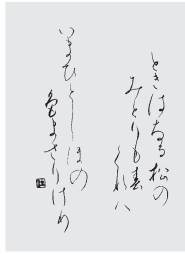 ときはなる松の
みとりも春
くれハ
いまひとしほの
色まさりけり